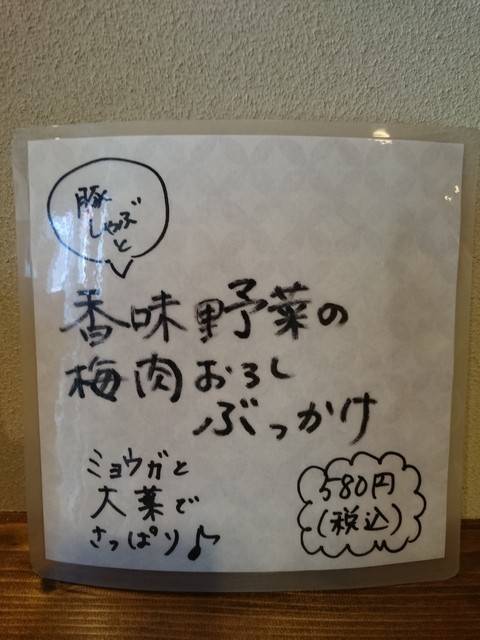 豚
しゃぶ
と
香味野菜の
梅肉おろし
ぶっかけ
ミョウガと
大葉で
さっぱり♪
580円
(税込)